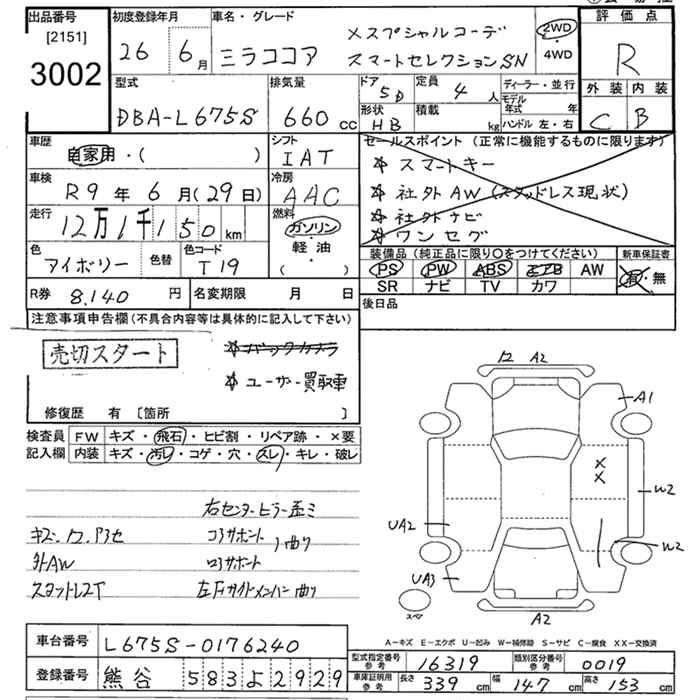 出品番号
[2151]
3002
初度登録年月
26 6月
車名・グレード
ミラココア
メスプシャルコーデ
スマートセレクションSN
2WD
4WD
評価点
R
外装 内装
C B
型式
DBA-L675S
排気量
660 cc
ドア
5D
定員
4 人
形状
HB
積載
kg
ディーラー・並行
モデル年式 年
ハンドル 左・右
車歴
自家用・( )
シフト
IAT
車検
R9年6月(29日)
冷房
AAC
走行
12万1千150km
燃料
ガソリン
軽油
( ・ )
色
アイボリー
色替
色コード
T19
セールスポイント(正常に機能するものに限ります)
☆ スマートキー
☆ 社外AW(スタッドレス現状)
☆ 社外ナビ
☆ ワンセグ
装備品(純正品に限り○をつけてください)
PS PW ABS エアB AW
SR ナビ TV カワ
新車保証書
有・無
R券 8,140円
名変期限 月 日
後日品
注意事項申告欄(不具合内容等は具体的に記入して下さい)
売切スタート
☆ バックカメラ
☆ ユーザー買取車
修復歴 有 [箇所 ]
検査員記入欄
FW キズ・飛石・ヒビ割・リペア跡・×要
内装 キズ・汚レ・コゲ・穴・スレ・キレ・破レ
右センターピラー歪ミ
コアサポート
ロアサポート
曲り
外AW
左Fサイドメンバー曲り
12 A2
A1
X
X
W2
W2
UA2
UA3
A2
スペア
A−キズ E−エクボ U−凹み W−補修跡 S−サビ C−腐食 XX−交換済
車台番号 L675S-0176240
登録番号 熊谷 583よ2929
型式指定番号参考 16319
類別区分番号参考 0019
車庫証明用参考 長さ 339cm 幅 147cm 高さ 153cm